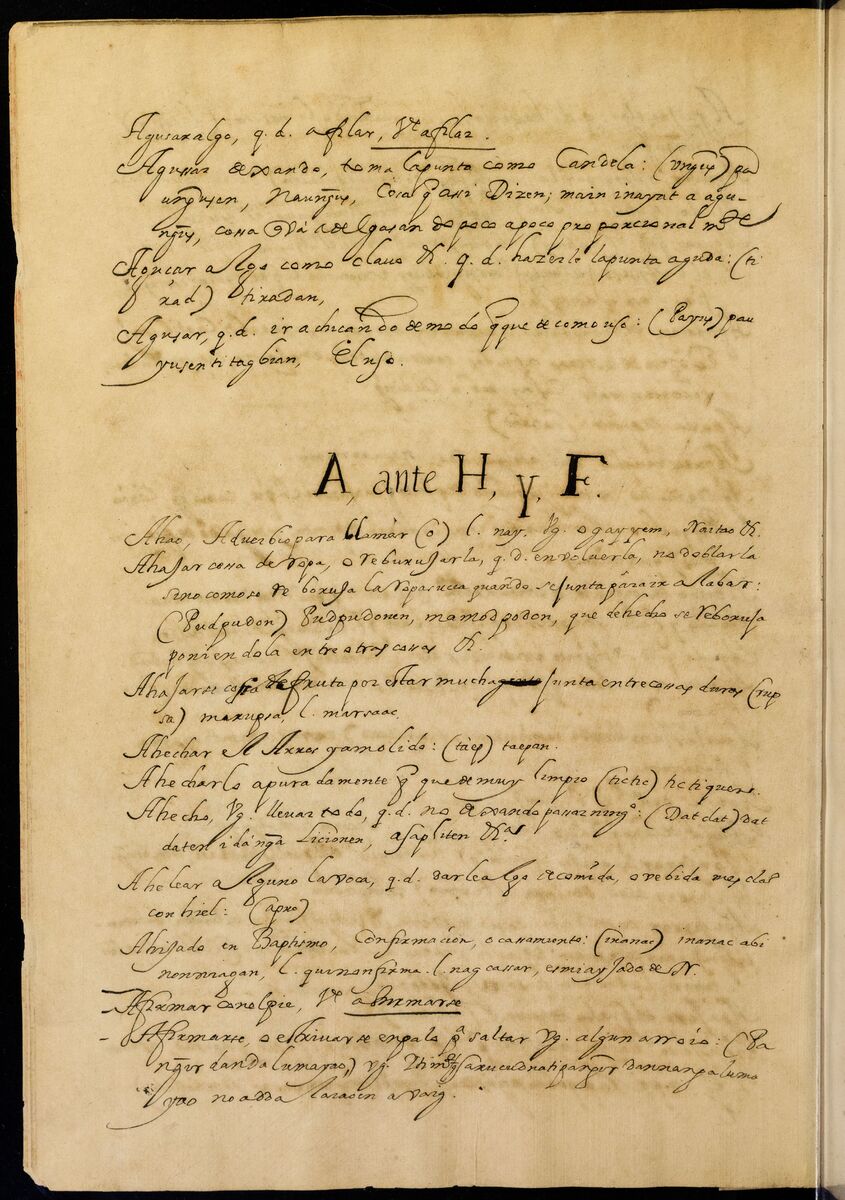 Agusar algo, q. d. afilar, Vᵗᵉ afilar.
Agussar dexando, toma la punta como Candela: (ungꝰis) pa
ungusen, Naungus, Cosa q̃ assi Dizen; main inayat a agu-
ngus, cossa q̃ Vá adelgasan do poco apoco proporcionalmᵗᵉ
Agucar algo como clauo &. q. d. hazerle la punta aguda: (ti
rad) tiradan,
Agusar, q. d. ir achicando de modo q̃ que de como uso: (Payus) pau
yusen ti tagbian, El uso.
A, ante H, y, F.
Ahao, Aduerbio para llamar (o) l. nay. Vg. o gayyem, Naitao &.
Ahajar cossa de ropa, o reburujarla, q. d. enuoluerla, no doblarla
sino como se re boruja la ropa sucia quando se junta para ir a labar:
(Pudpudon) Pudpudonen, mamodpodon, que de hecho se reboruja
poniendola entre otras cossas &.
Ahajarse cossa de fruta por estar mucha junta entre cossas duras (rup
sa) marupsa, l. marsaac.
Ahechar el Arros ya molido: (tàep) taepan.
Ahecharlo apuradamente q̃ que de muy limpio (tictic) tictiquen.
Ahecho, Vg. lleuar todo, q. d. no dexando passar ningº: (Datdat) dat
daten i dánga licionen, asapliten &ᵃ
Ahelear a Alguno la voca, q. d. darle algo de comida, o vebida mesclaᵒ
con hiel: (apro)
Ahijado en Baptismo, Confirmacion, o cassamiento: (inanac) inanac abi
nonniagan, l. quinonfirma. l. nag cassar, es mi ayjado de N.
Afirmar con el pie, Vᵗᵉ afirmarse
Afirmarse, o estriuarse en palo pᵃ saltar Vg. algun arroio: (Pa